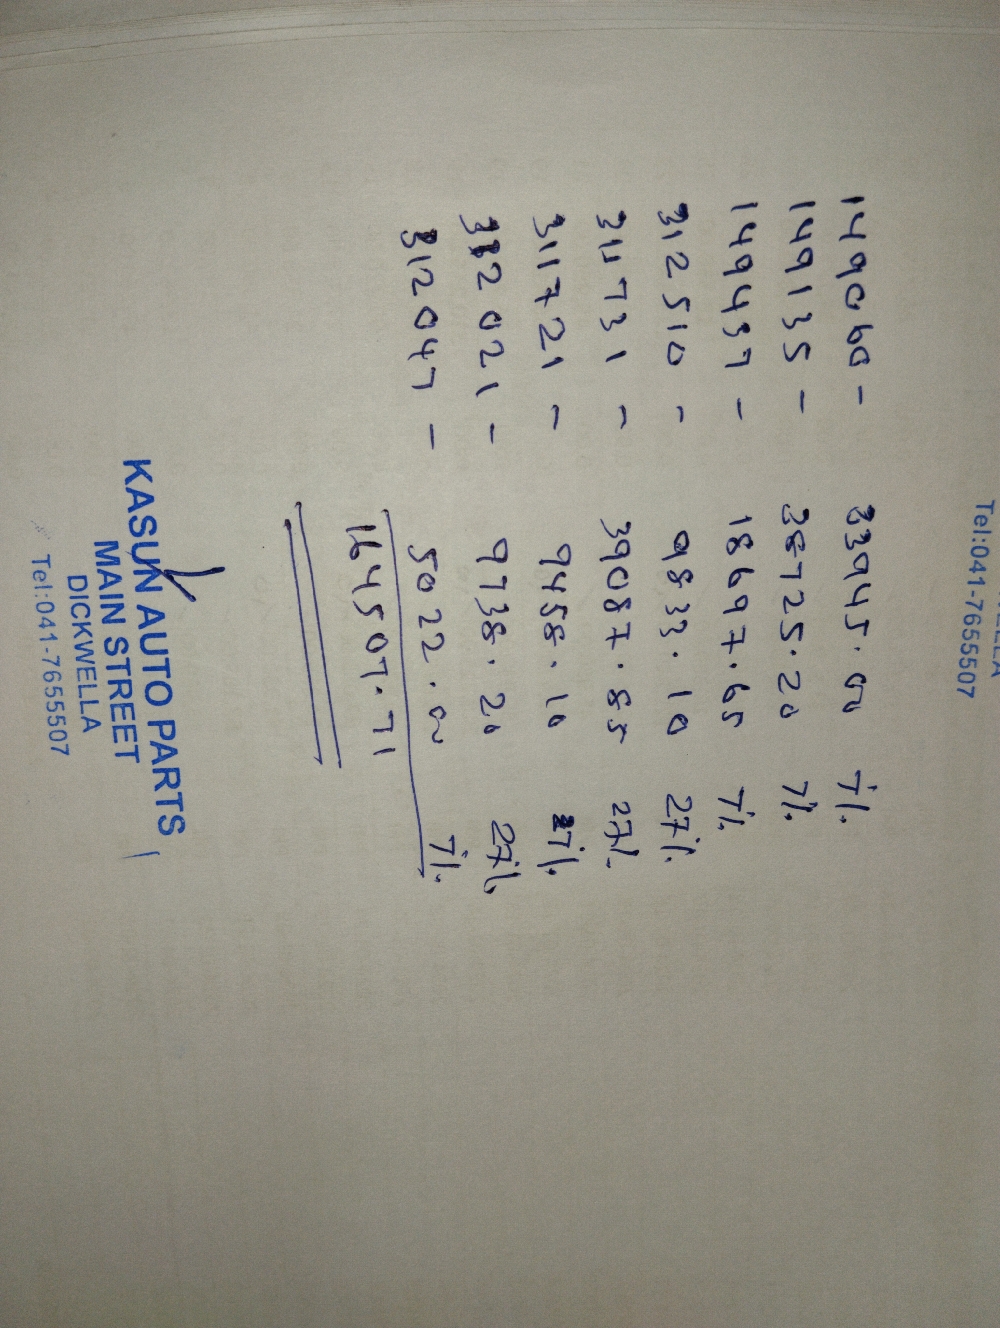 Tel:041-7655507
149060 - 33945.00 7%
149135 - 38725.20 7%
149437 - 18697.65 7%
312510 - 9833.10 27%
311731 - 39087.85 27%
311721 - 9458.10 27%
312021 - 9738.20 27%
312047 - 5022.00 7%
164507.71
KASUN AUTO PARTS
MAIN STREET
DICKWELLA
Tel:041-7655507